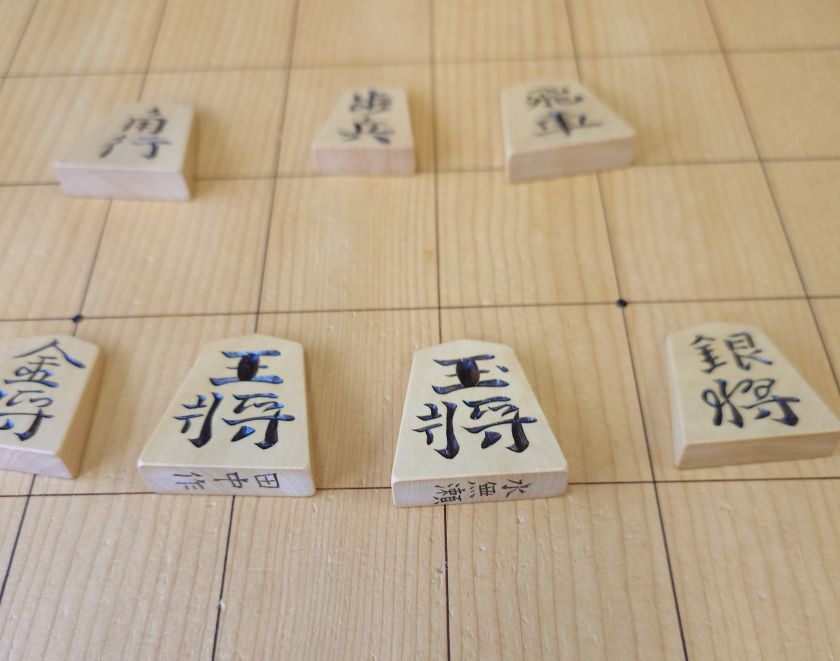 角行
歩兵
飛車
金将
王将
玉将
銀将
田中作
水無瀬